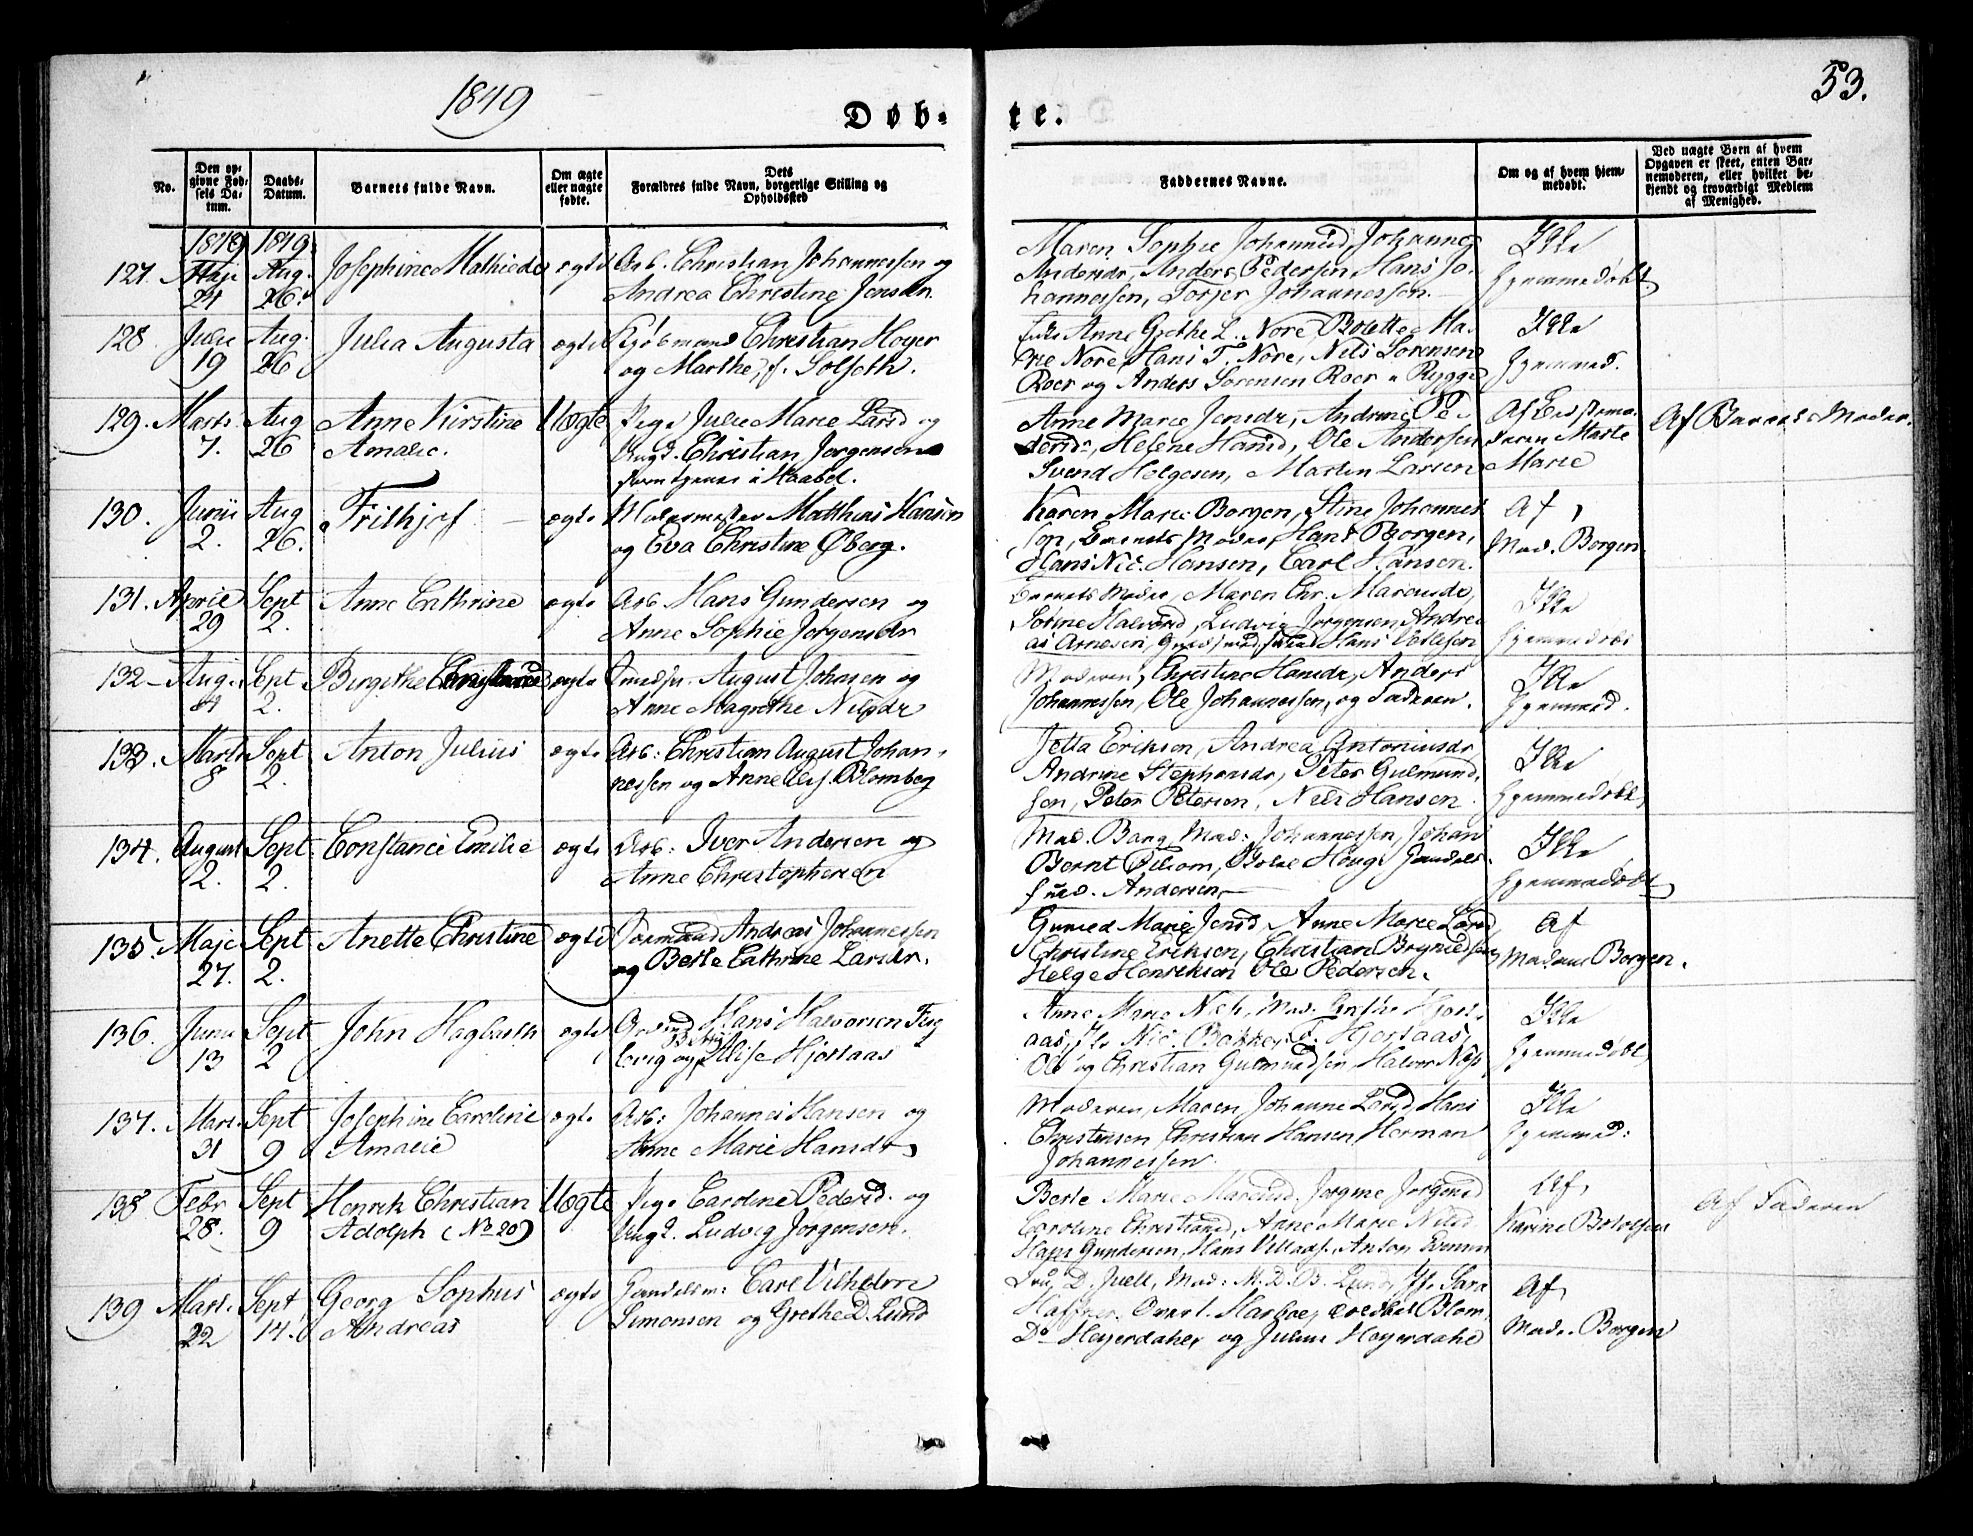 1849
53.
Døb-
te.
No.
Den op-
givne Fød-
sels Da-
tum.
Daabs-
Datum.
Barnets fulde Navn.
Om ægte
eller uægte
fødte.
Dets
Forældres fulde Navn, borgerlige Stilling og
Opholdssted
Faddernes Navne.
Om og af hvem hjem-
medøbt.
Ved uægte Børn af hvem
Opgaven er skeet, enten Bar-
nemoderen, eller hvilket be-
kjendt og troværdigt Medlem
af Menighed.
1849 1849
127. Maji 24 Aug. 26. Josephine Mathilde ægte Arb. Christian Johannessen og
Andrea Christine Jensdr.
Maren Sophie Johannesd, Johanne
Andersdr, Anders Pedersen, Hans Jo-
hannessen, Torjer Johannessen.
Ikke
hjemmedøbt.
128. Julii 19 Aug. 26 Julia Augusta ægte Kjøbmand Christian Hoyer
og Marthe, f. Solseth.
Anne Grethe L. Nore, Bolette Ma-
rie Nore, Hans T. Nore, Nils Sørensen
Roer og Anders Sørensen Roer Rygge
Ikke
hjemmed.
129. Marts 7. Aug 26 Anne Kirstine
Amalie.
Uægte Pige Julie Marie Larsd og
Ungk. Christian Jørgensen
Anne Marie Jensdr, Andrine Pe-
dersdr, Helene Hansd, Ole Andersen
Svend Helgesen, Martin Larsen
Marte
Marie
Af Barnets Moder.
130. Junii 2. Aug 26. Frithjof ægte Malermester Matthias Hansen
og Eva Christine Øberg.
Karen Marie Borgen, Stine Johannes
sen, Barnets Moder, Hans Borgen,
Hans Nic. Hansen, Carl Hansen.
Af
Mad. Borgen
131. April 29 Sept 2. Anne Cathrine ægte Arb Hans Gundersen og
Anne Sophie Jørgensdr
Barnets Moder, Maren Chr. Marcusdr,
Sørine Halvorsd, Ludvig Jørgensen, Andre
as Arnesen, Hans
Ikke
hjemmedøbt
132 Aug. 4 Sept 2. Birgithe ægte Smedsv. August Johnsen og
Anne Magrethe Nilsdr
Moderen, Christine Hansdr, Anders
Johannessen, Ole Johannessen, og Faderen.
Ikke
hjemmed.
133. Marts 8 Sept 2. Anton Julius ægte Arb: Christian August Johan-
nessen og Anne Elis. Blomberg
Jetta Eriksen, Andrea Antoniusdr,
Andrine Stephansdr, Peter Gulmund-
sen, Peter Petersen, Niels Hansen.
Ikke
hjemmedøbt
134. August 2. Sept 2. Constance Emilie ægte Arb: Iver Andersen og
Anne Christophersen
Mad. Bang, Mad: Johannessen, Johan
Bernt
Andersen
Ikke
hjemmedøbt
135. Maji 27. Sept 2. Anette Christine ægte Andreas Johannessen
og Berte Cathrine Larsdr.
Gunild Marie Jensd Anne Marie Larsd,
Christine Eriksen, Christian Brynildsen,
Helge Henriksen Ole Pedersen.
Af
Madam Borgen.
136. Junii 13 Sept 2 John Hagbarth ægte Hans Halvorsen Fug
levig og Elise Hjorlaas
Anne Marie Næs, Mad: Grethe Hjor-
laas, Nic. Bakke, Hjorlaas,
Ole og Christian Gulmundsen, Halvor Næs
Ikke
hjemmedøbt
137. Mart. 31 Sept 9 Josephine Caroline
Amalie
ægte Arb: Johannes Hansen og
Anne Marie Hansdr
Moderen, Maren Johanne Larsd, Hans
Christensen, Christian Hansen, Herman
Johannessen.
Ikke
hjemmed:
138 Febr 28. Sept 9 Henrik Christian
Adolph (No 20)
Uægte Pige Caroline Pedersd. og
Ungk. Ludvig Jørgensen.
Berte Marie Marcusd. Jørgine Jørgensd
Caroline Christiansd, Anne Marie Nilsd.
Hans Gundersen, Hans Anton
Af
Karine
Af Faderen
139 Mart. 22 Sept 14. Georg Sophus
Andreas
ægte Handelsm: Carl Vilhelm
Simonsen og Grethe D. Lund
D. Juell, Mad: M. D. B. Lund, Jfr. Sara
Haffner, Harboe, Blom,
Do Heyerdahl, og Julius Heyerdahl
Af
Mad. Borgen